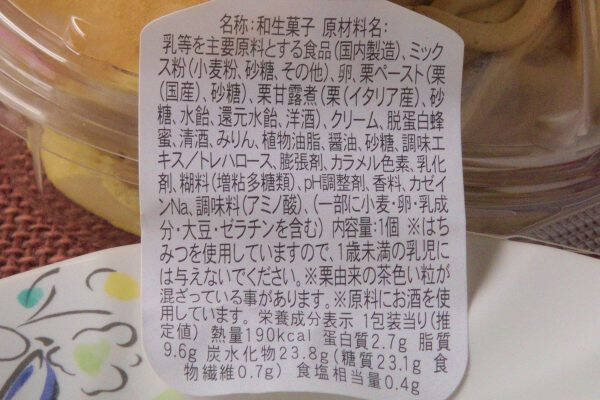 名称:和生菓子 原材料名:
乳等を主要原料とする食品(国内製造)、ミック
ス粉(小麦粉、砂糖、その他)、卵、栗ペースト(栗
(国産)、砂糖)、栗甘露煮(栗(イタリア産)、砂
糖、水飴、還元水飴、洋酒)、クリーム、脱蛋白蜂
蜜、清酒、みりん、植物油脂、醤油、砂糖、調味エ
キス/トレハロース、膨張剤、カラメル色素、乳化
剤、糊料(増粘多糖類)、pH調整剤、香料、カゼイ
ンNa、調味料(アミノ酸)、(一部に小麦・卵・乳成
分・大豆・ゼラチンを含む) 内容量:1個 ※はち
みつを使用していますので、1歳未満の乳児に
は与えないでください。※栗由来の茶色い粒が
混ざっている事があります。※原料にお酒を使
用しています。栄養成分表示 1包装当り(推
定値) 熱量190kcal 蛋白質2.7g 脂質
9.6g 炭水化物23.8g(糖質23.1g 食
物繊維0.7g) 食塩相当量0.4g